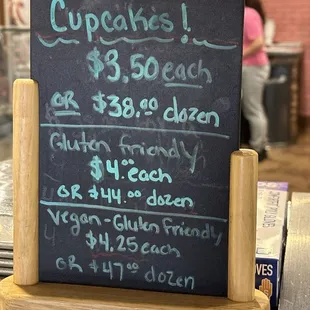 Cupcakes!
$3.50 each
OR $38.00 dozen
Gluten friendly
$4.00 each
OR $44.00 dozen
Vegan-Gluten Friendly
$4.25 each
OR $47.00 dozen
OVES